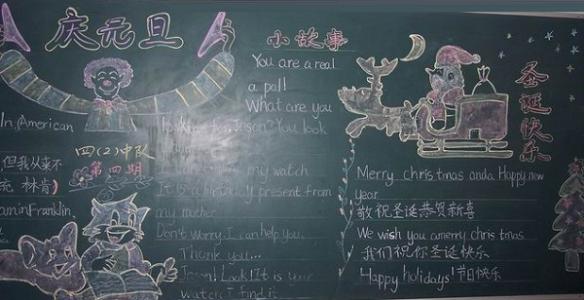 庆元旦
小故事
圣诞快乐
You are a real
a pal!
What are you
In American
You look
四(2)中队
第四期
但我从来不
my watch
It is a birthday present from
my mother
Don't worry. I can help you.
Thank you
Look! It is your
watch I find it
Merry chris tmas anda Happy new
year
敬祝圣诞恭贺新喜
We wish you amerry chris tmas
我们祝你圣诞快乐
Happy holidays! 节日快乐